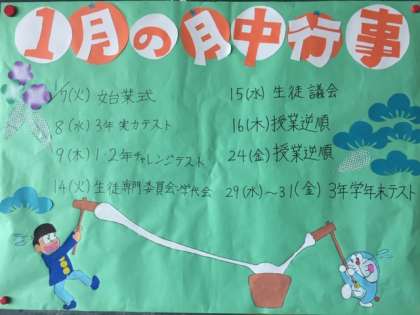 1月の月中行事
1/7(火) 始業式
8(水) 3年実力テスト
9(木) 1・2年チャレンジテスト
14(火) 生徒専門委員会・学代会
15(水) 生徒議会
16(木) 授業逆順
24(金) 授業逆順
29(水)〜31(金) 3年学年末テスト